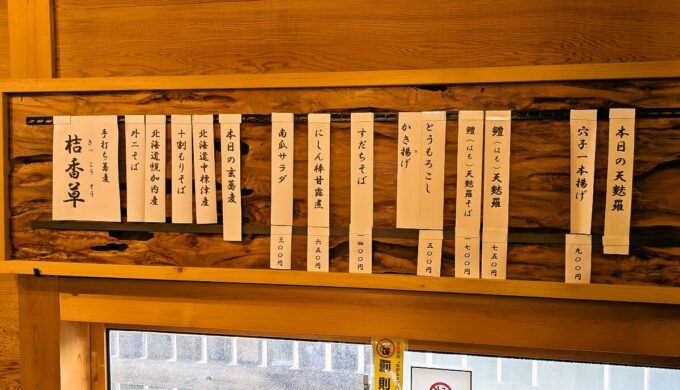 本日の天麩羅
穴子一本揚げ
九〇〇円
鱧(はも)天麩羅
七五〇円
鱧(はも)天麩羅そば
一七〇〇円
とうもろこし
かき揚げ
五〇〇円
すだちそば
一四〇〇円
にしん棒甘露煮
六五〇円
南瓜サラダ
三〇〇円
本日の玄蕎麦
北海道中標津産
十割もりそば
北海道幌加内産
外二そば
手打ち蕎麦
桔香草
きっこうそう
罰則